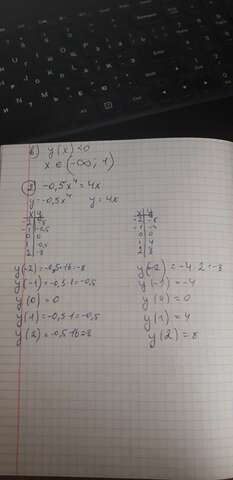 б) y(x)<0
x ∈ (-∞; 1)
-0,5x⁴ = 4x
y=-0,5x⁴ y=4x
x y x y
-2 -8
-1 -0,5 -1 -4
0 0 0 0
1 -0,5 1 4
2 -8 2 8
y(-2)=-0,5·16=-8 y(-2)=-4·2=-8
y(-1)=-0,5·1=-0,5 y(-1)=-4
y(0)=0 y(0)=0
y(1)=-0,5·1=-0,5 y(1)=4
y(2)=-0,5·16=8 y(2)=8